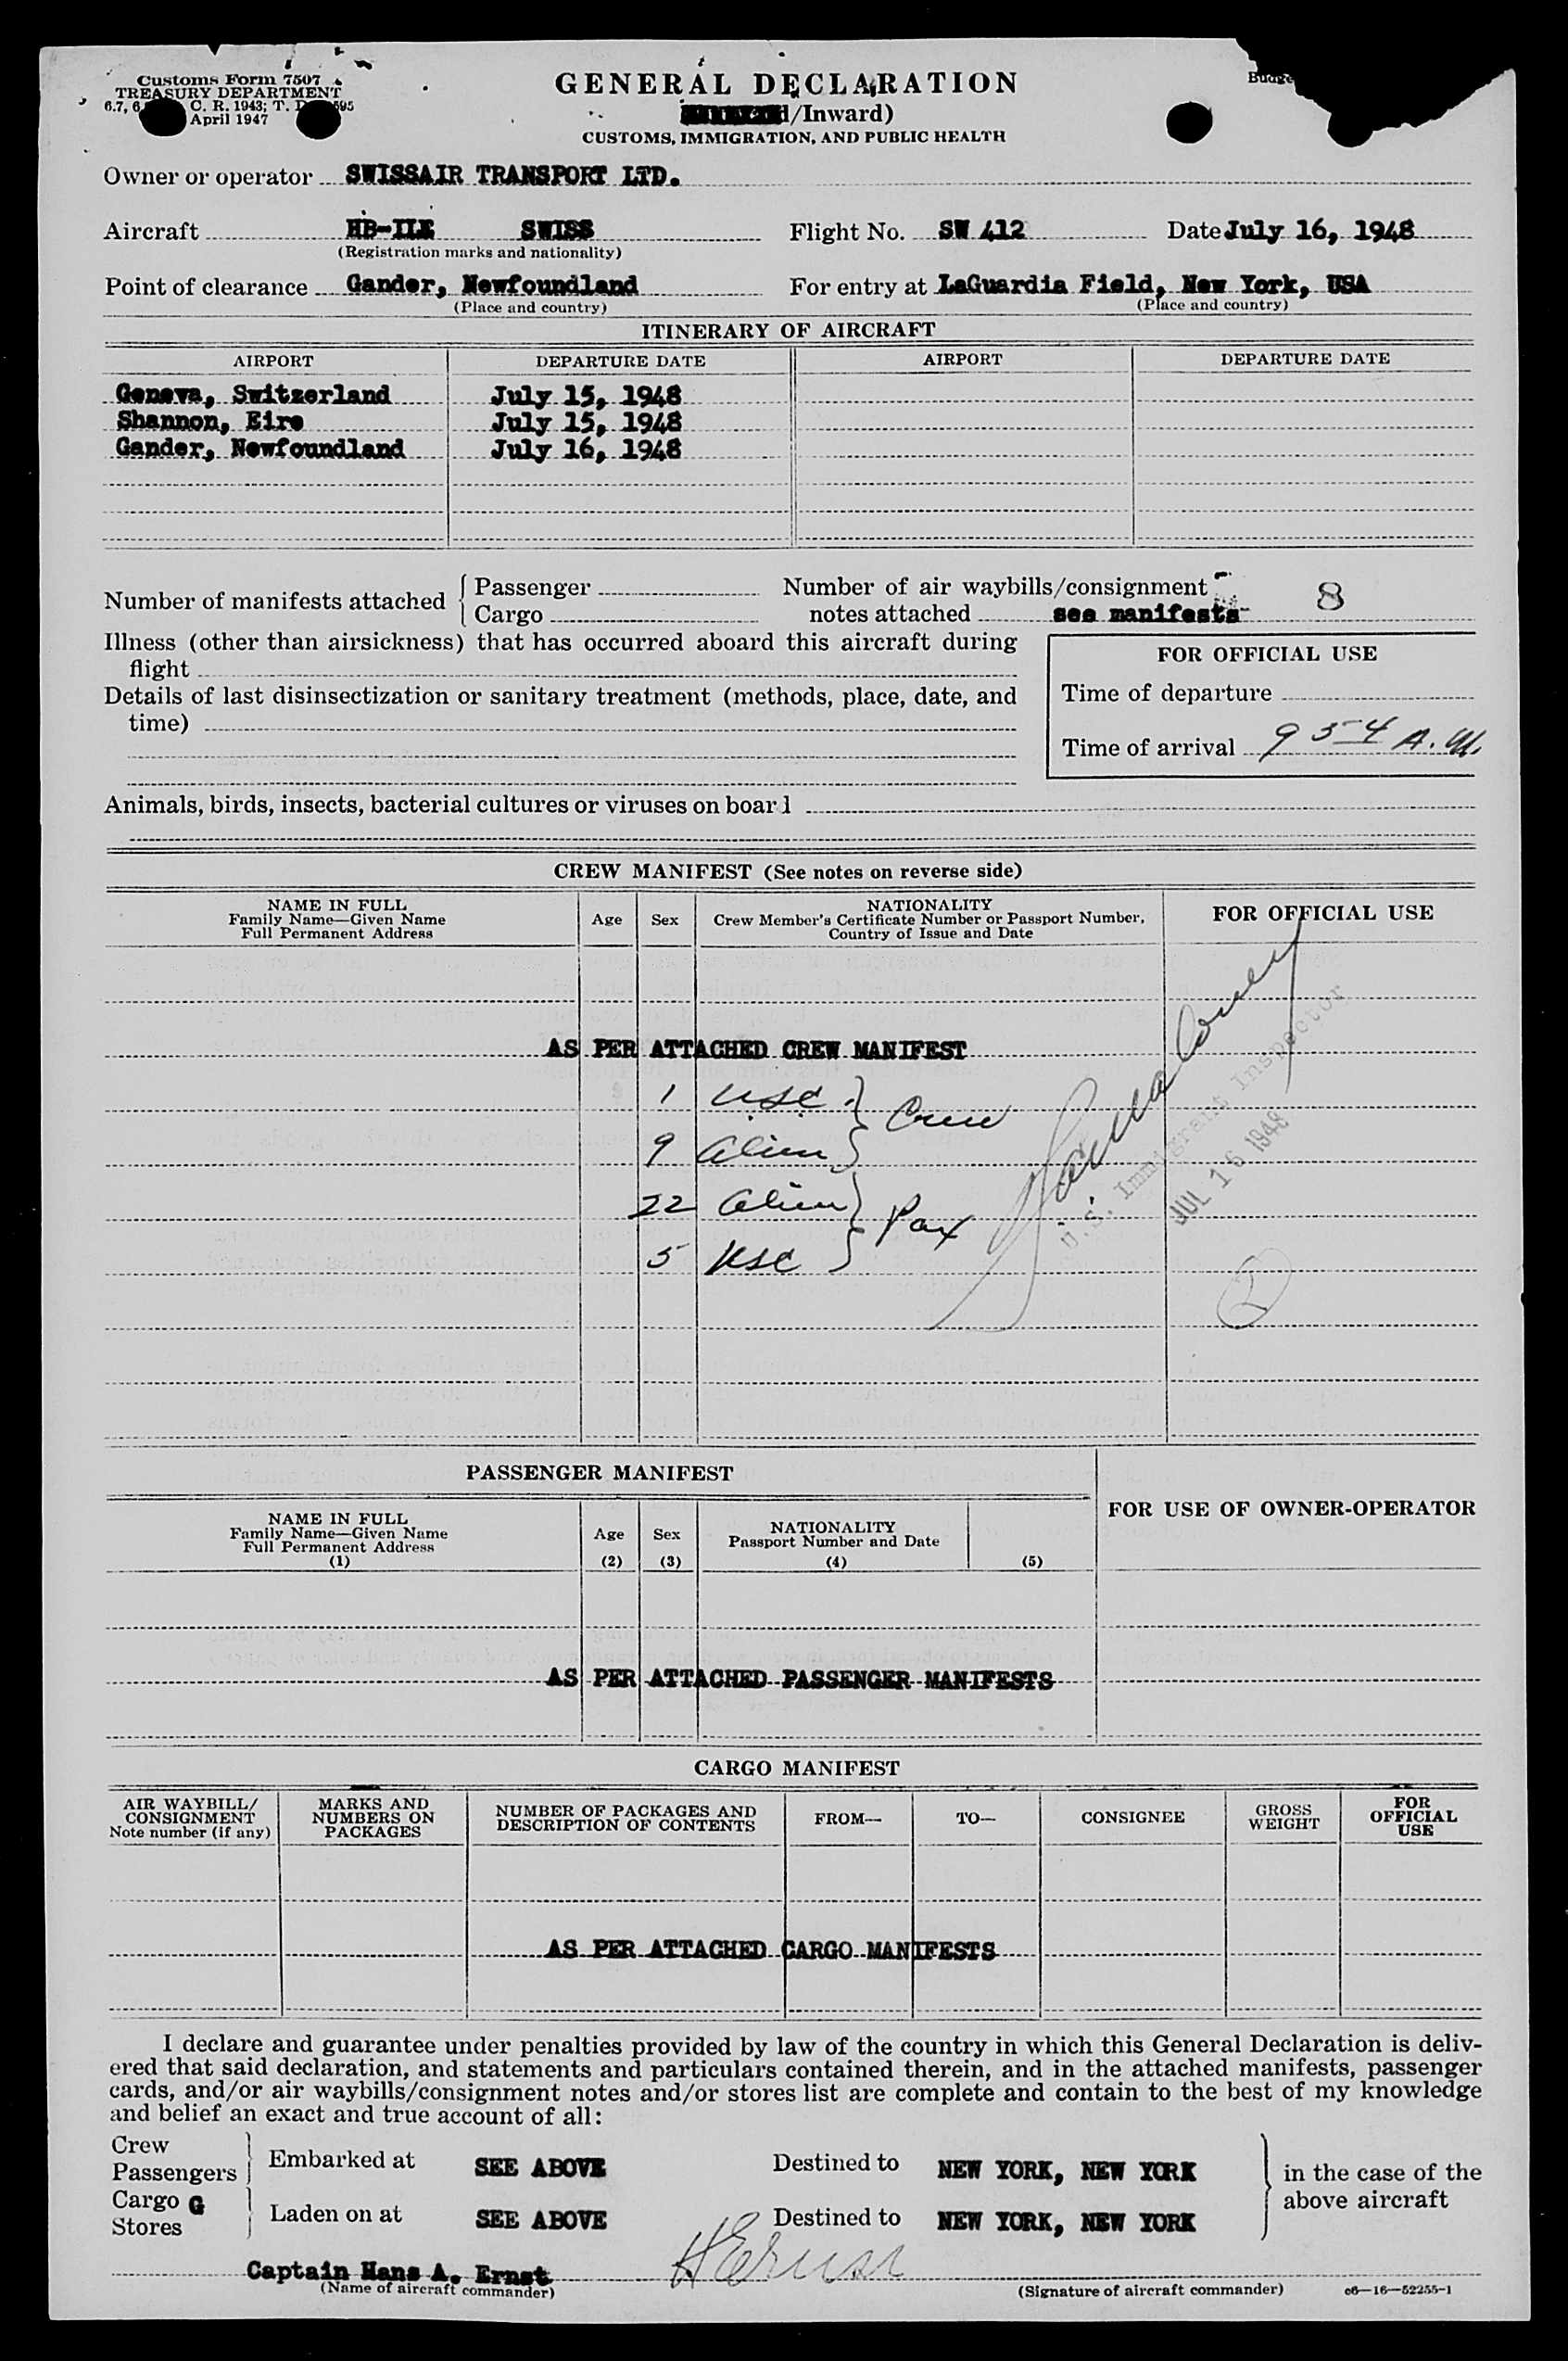 Customs Form 7507
TREASURY DEPARTMENT
C. R. 1943; T. D.
April 1947
GENERAL DECLARATION
/Inward)
CUSTOMS, IMMIGRATION, AND PUBLIC HEALTH
Owner or operator SWISSAIR TRANSPORT LTD.
Aircraft HB-ILE SWISS Flight No. SW 412 Date July 16, 1948
(Registration marks and nationality)
Point of clearance Gander, Newfoundland For entry at LaGuardia Field, New York, USA
(Place and country) (Place and country)
ITINERARY OF AIRCRAFT
AIRPORT DEPARTURE DATE AIRPORT DEPARTURE DATE
Geneva, Switzerland July 15, 1948
Shannon, Eire July 15, 1948
Gander, Newfoundland July 16, 1948
Number of manifests attached { Passenger Number of air waybills/consignment 8
Cargo notes attached see manifests
Illness (other than airsickness) that has occurred aboard this aircraft during
flight
Details of last disinsectization or sanitary treatment (methods, place, date, and
time)
FOR OFFICIAL USE
Time of departure
Time of arrival 9 54 A.M.
Animals, birds, insects, bacterial cultures or viruses on board
CREW MANIFEST (See notes on reverse side)
NAME IN FULL
Family Name—Given Name
Full Permanent Address
Age
Sex
NATIONALITY
Crew Member's Certificate Number or Passport Number,
Country of Issue and Date
FOR OFFICIAL USE
AS PER ATTACHED CREW MANIFEST
1 USC } Crew
9 Alien
22 Alien } Pax
5 USC
U.S. Immigrant Inspector
JUL 16 1948
2
PASSENGER MANIFEST
NAME IN FULL
Family Name—Given Name
Full Permanent Address
(1)
Age
(2)
Sex
(3)
NATIONALITY
Passport Number and Date
(4)
(5)
FOR USE OF OWNER-OPERATOR
AS PER ATTACHED PASSENGER MANIFESTS
CARGO MANIFEST
AIR WAYBILL/
CONSIGNMENT
Note number (if any)
MARKS AND
NUMBERS ON
PACKAGES
NUMBER OF PACKAGES AND
DESCRIPTION OF CONTENTS
FROM—
TO—
CONSIGNEE
GROSS
WEIGHT
FOR
OFFICIAL
USE
AS PER ATTACHED CARGO MANIFESTS
I declare and guarantee under penalties provided by law of the country in which this General Declaration is deliv-
ered that said declaration, and statements and particulars contained therein, and in the attached manifests, passenger
cards, and/or air waybills/consignment notes and/or stores list are complete and contain to the best of my knowledge
and belief an exact and true account of all:
Crew
Passengers } Embarked at SEE ABOVE Destined to NEW YORK, NEW YORK } in the case of the
Cargo G above aircraft
Stores } Laden on at SEE ABOVE Destined to NEW YORK, NEW YORK
Captain Hans A. Ernst HErnst
(Name of aircraft commander) (Signature of aircraft commander) c6—16—52255-1